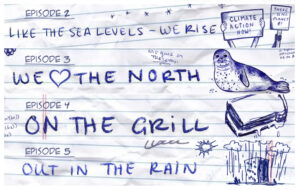 EPISODE 2
LIKE THE SEA LEVELS - WE RISE
CLIMATE
ACTION
NOW!
THERE
IS NO
PLANET
B
EPISODE 3
WE ♡ THE NORTH
EPISODE 4
ON THE GRILL
EPISODE 5
OUT IN THE RAIN